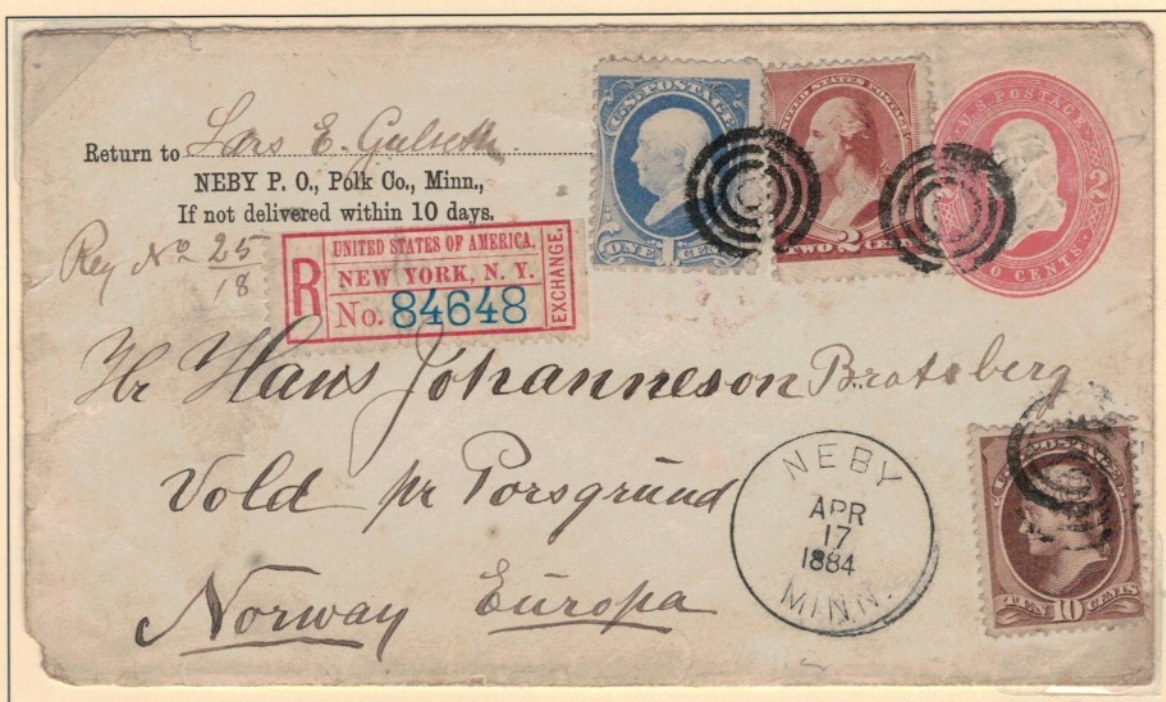 Return to Lars E.
NEBY P. O., Polk Co., Minn.,
If not delivered within 10 days.
Reg No 25
18
R
UNITED STATES OF AMERICA.
NEW YORK, N. Y.
No. 84648
EXCHANGE.
U.S. POSTAGE
ONE CENT
UNITED STATES POSTAGE
TWO 2 CENTS
U.S. POSTAGE
2
TWO CENTS
Hr Hans Johanneson Bratsberg
Vold pr Porsgrund
Norway Europa
NEBY
APR
17
1884
MINN.
U.S. POSTAGE
TEN 10 CENTS